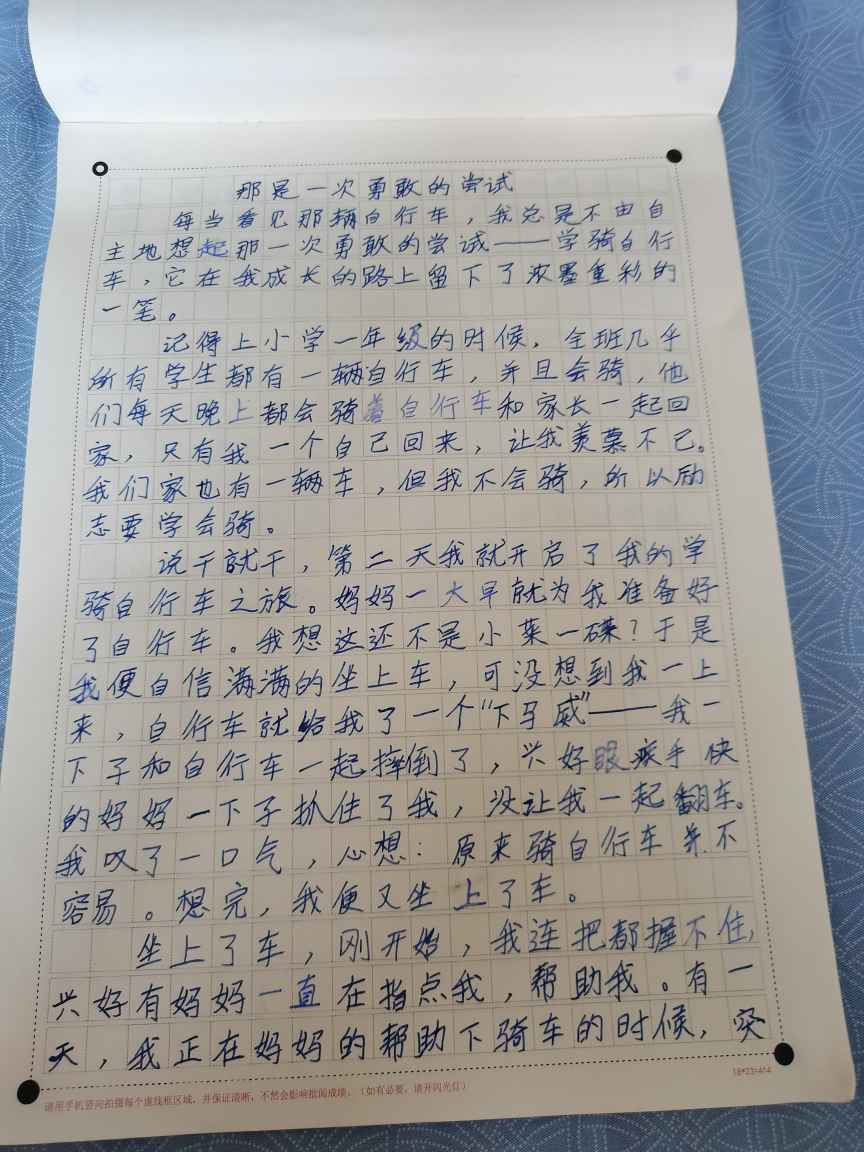 那是一次勇敢的尝试
每当看见那辆自行车，我总是不由自
主地想起那一次勇敢的尝试——学骑自行
车，它在我成长的路上留下了浓墨重彩的
一笔。
记得上小学一年级的时候，全班几乎
所有学生都有一辆自行车，并且会骑，他
们每天晚上都会骑着自行车和家长一起回
家，只有我一个自己回来，让我羡慕不已。
我们家也有一辆车，但我不会骑，所以励
志要学会骑。
说干就干，第二天我就开启了我的学
骑自行车之旅。妈妈一大早就为我准备好
了自行车。我想这还不是小菜一碟？于是
我便自信满满的坐上车，可没想到我一上
来，自行车就给我了一个“下马威”——我一
下子和自行车一起摔倒了，兴好眼疾手快
的妈妈一下子抓住了我，没让我一起翻车。
我叹了一口气，心想：原来骑自行车并不
容易。想完，我便又坐上了车。
坐上了车，刚开始，我连把都握不住，
兴好有妈妈一直在指点我，帮助我。有一
天，我正在妈妈的帮助下骑车的时候，突
请用手机竖向拍摄每个虚线框区域，并保证清晰，不然会影响批阅成绩。（如有必要，请开闪光灯）
18*23=414